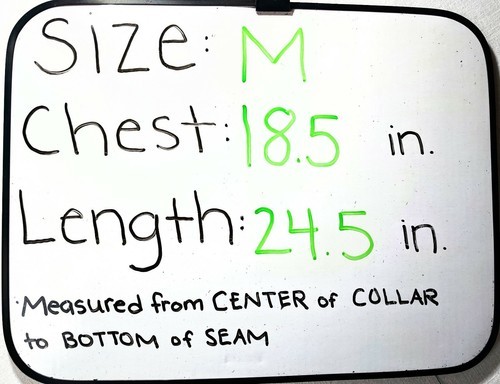 Size: M
Chest: 18.5 in.
Length: 24.5 in.
Measured from CENTER of COLLAR
to BOTTOM of SEAM